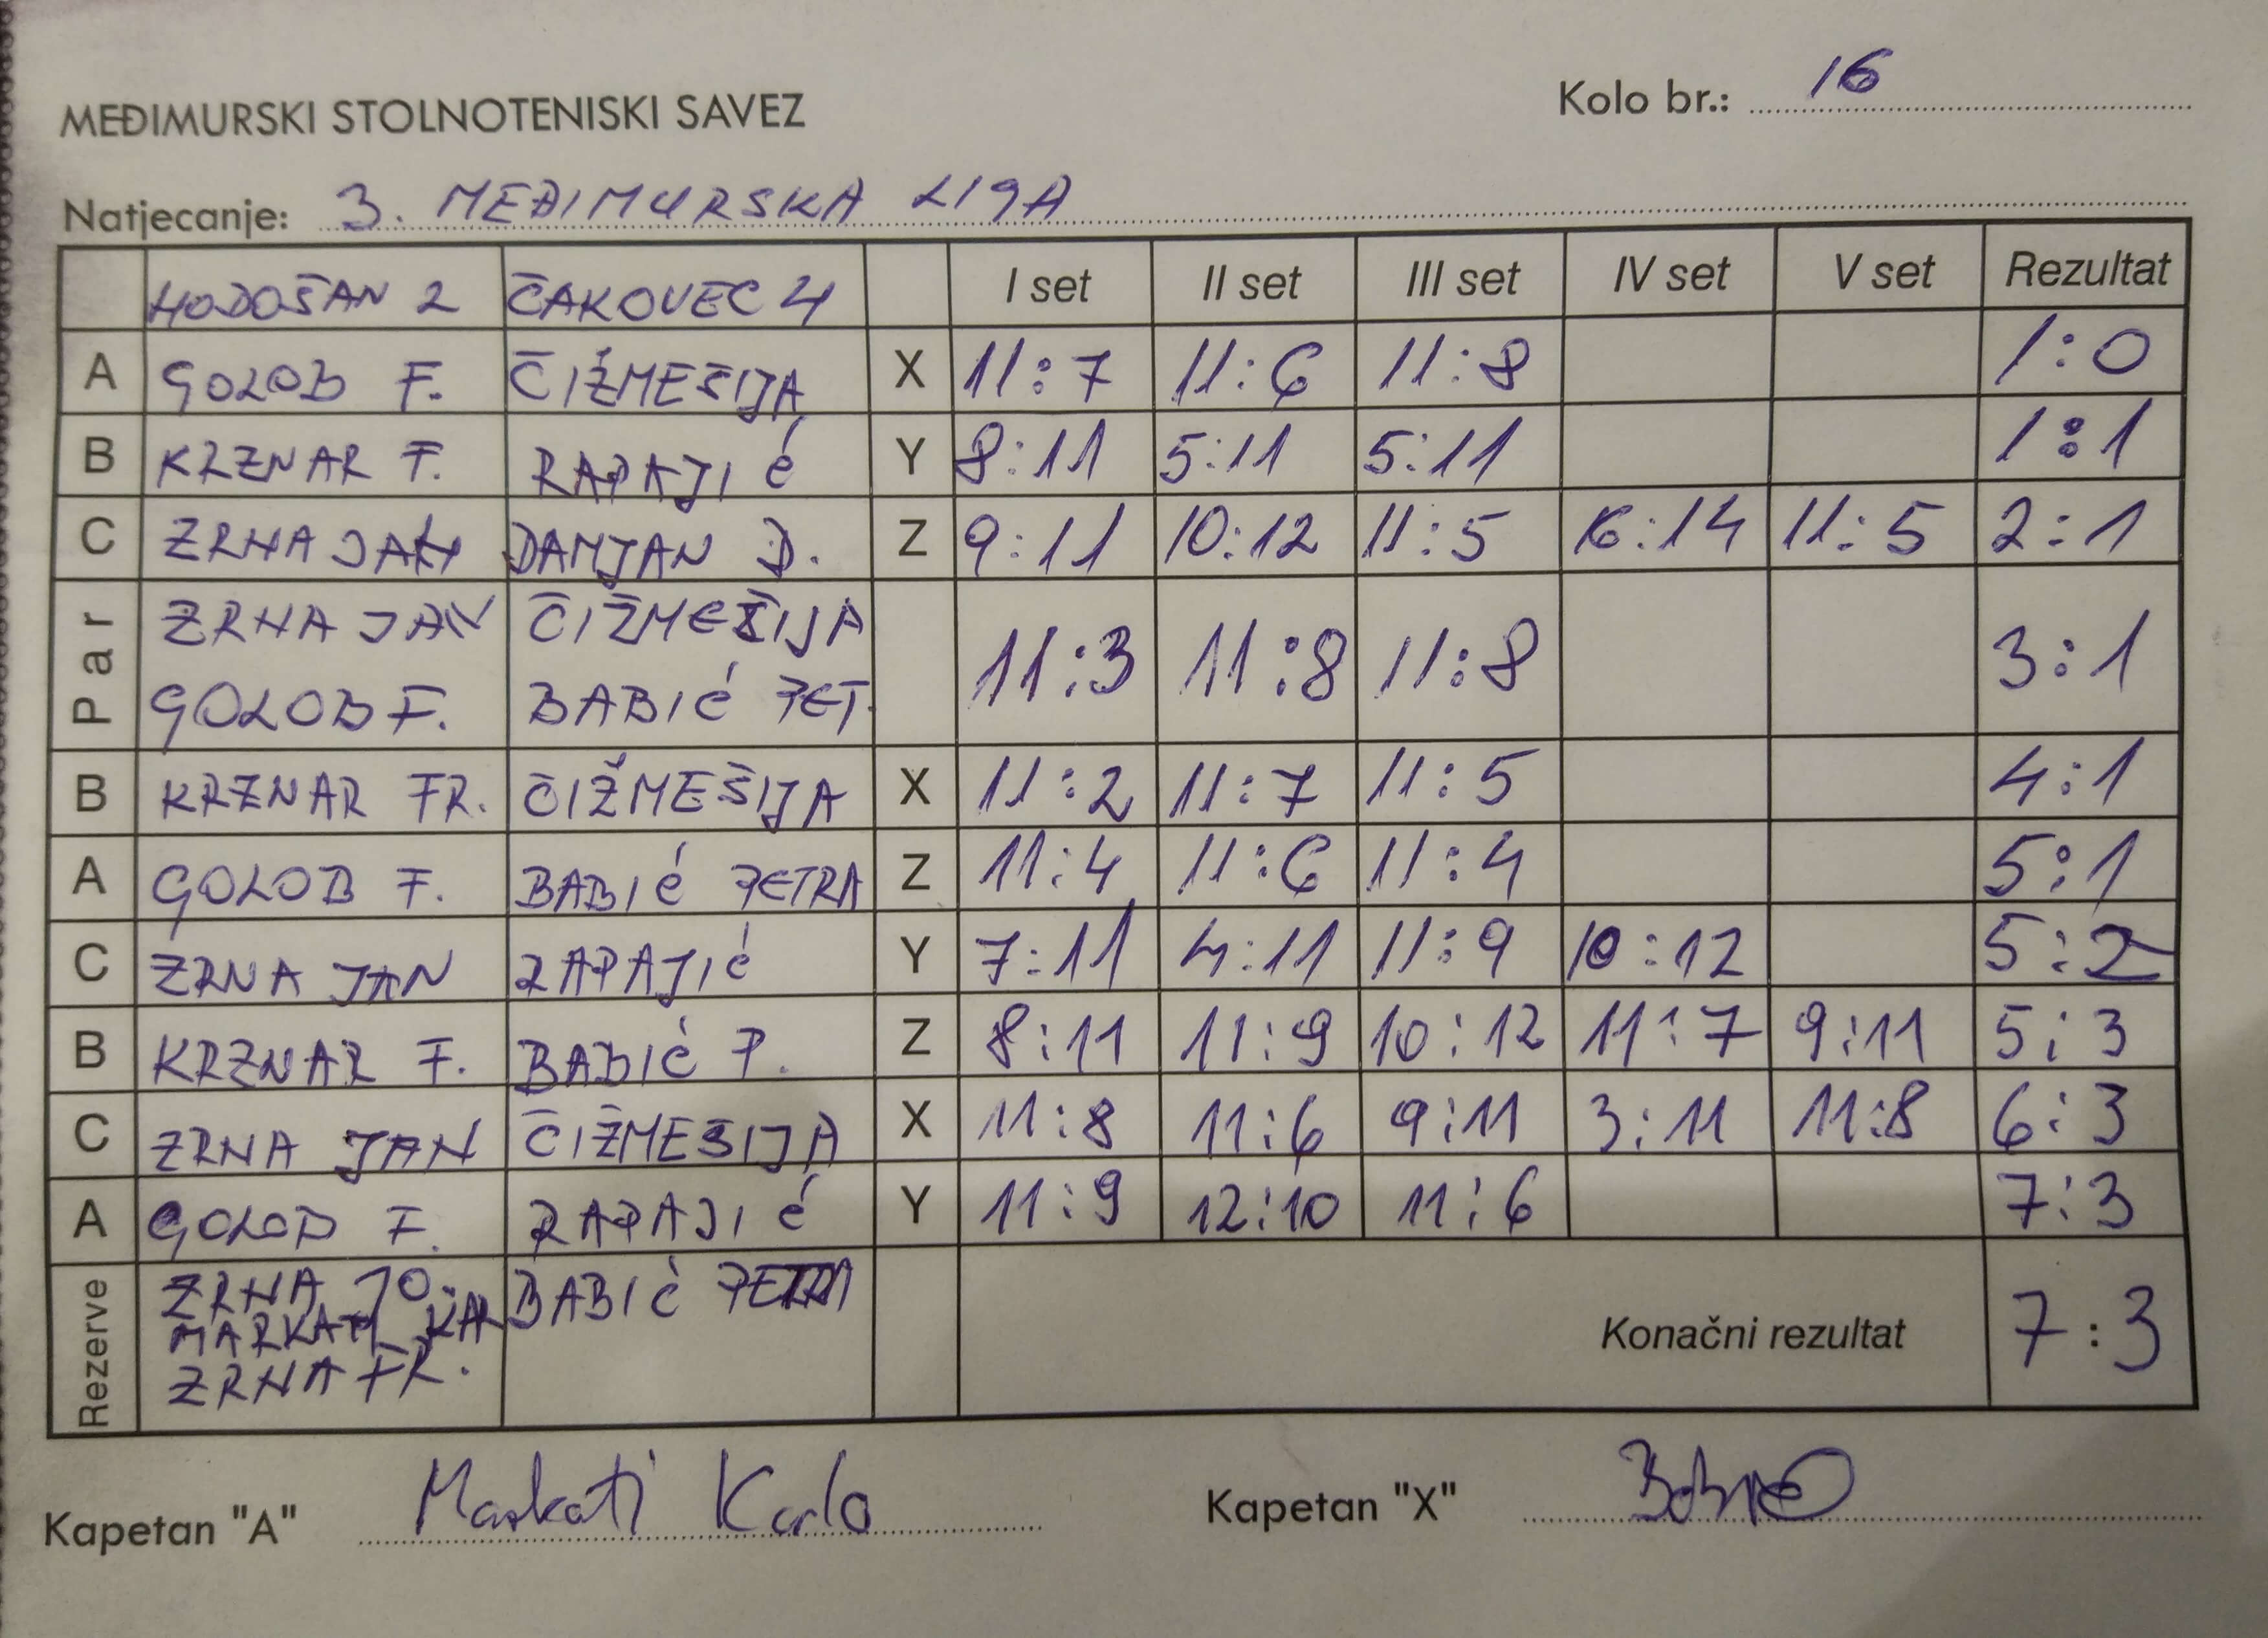 MEĐIMURSKI STOLNOTENISKI SAVEZ
Kolo br.: 16
Natjecanje: 3. MEĐIMURSKA LIGA
HODOŠAN 2 ČAKOVEC 4 I set II set III set IV set V set Rezultat
A GOLOB F. ČIŽMEŠIJA X 11:7 11:6 11:8 1:0
B KRZNAR F. RAPAJIĆ Y 8:11 5:11 5:11 1:1
C ZRNA JAN DAMJAN D. Z 9:11 10:12 11:5 16:14 11:5 2:1
Par ZRNA JAN ČIŽMEŠIJA 11:3 11:8 11:8 3:1
GOLOB F. BABIĆ PET.
B KRZNAR FR. ČIŽMEŠIJA X 11:2 11:7 11:5 4:1
A GOLOB F. BABIĆ PETRA Z 11:4 11:6 11:4 5:1
C ZRNA JAN RAPAJIĆ Y 7:11 4:11 11:9 10:12 5:2
B KRZNAR F. BABIĆ P. Z 8:11 11:9 10:12 11:7 9:11 5:3
C ZRNA JAN ČIŽMEŠIJA X 11:8 11:6 9:11 3:11 11:8 6:3
A GOLOB F. RAPAJIĆ Y 11:9 12:10 11:6 7:3
Rezerve ZRNA JO. BABIĆ PETRA Konačni rezultat 7:3
ZRNA FR.
Kapetan "A" Markati Karlo Kapetan "X"